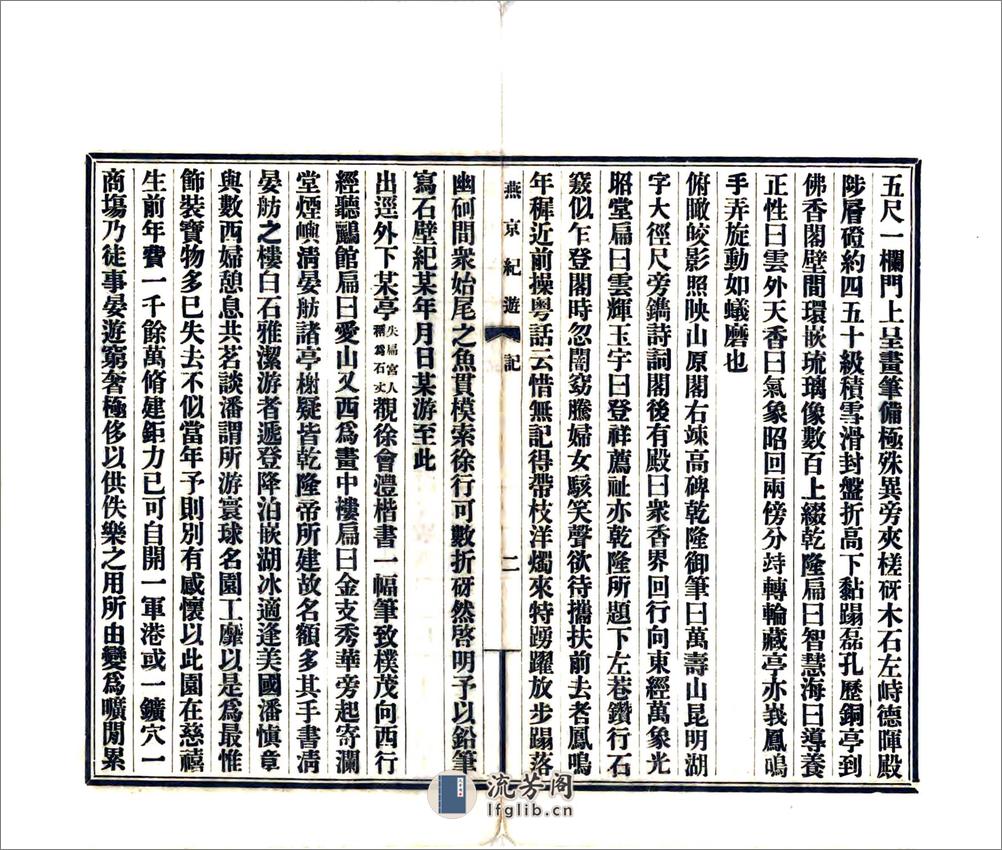 五尺一欄門上呈畫筆備極殊異旁夾槎砑木石左峙德暉殿
陟層磴約四五十級積雪滑封盤折高下黏蹋磊孔歷銅亭到
佛香閣壁間環嵌琉璃像數百上綴乾隆扁曰智慧海曰導養
正性曰雲外天香曰氣象昭回兩傍分峙轉輪藏亭亦峩鳳鳴
手弄旋動如蟻磨也
俯瞰皎影照映山原閣右竦高碑乾隆御筆曰萬壽山昆明湖
字大徑尺旁鐫詩詞閣後有殿曰衆香界回行向東經萬象光
昭堂扁曰雲輝玉宇曰登祥薦祉亦乾隆所題下左巷鑽行石
竅似乍登閣時忽闇窈騰婦女駭笑聲欲待攜扶前去者鳳鳴
年穉近前操粤話云惜無記得帶枝洋燭來特踴躍放步蹋落
燕京紀遊 記 二
幽砢間衆始尾之魚貫模索徐行可數折砑然啓明予以鉛筆
寫石壁紀某年月日某游至此
出逕外下某亭失扁宮人稱爲石丈觀徐會灃楷書一幅筆致樸茂向西行
經聽鸝館扁曰愛山又西爲畫中樓扁曰金支秀華旁起寄瀾
堂煙嶼淸晏舫諸亭榭疑皆乾隆帝所建故名額多其手書淸
晏舫之樓白石雅潔游者遞登降泊嵌湖冰適逢美國潘愼章
與數西婦憩息共茗談潘謂所游寰球名園工靡以是爲最惟
飾裝寶物多已失去不似當年予則別有感懷以此園在慈禧
生前年費一千餘萬脩建鉅力已可自開一軍港或一鑛穴一
商塲乃徒事晏遊窮奢極侈以供佚樂之用所由變爲曠閒累
流芳阁
lfglib.cn